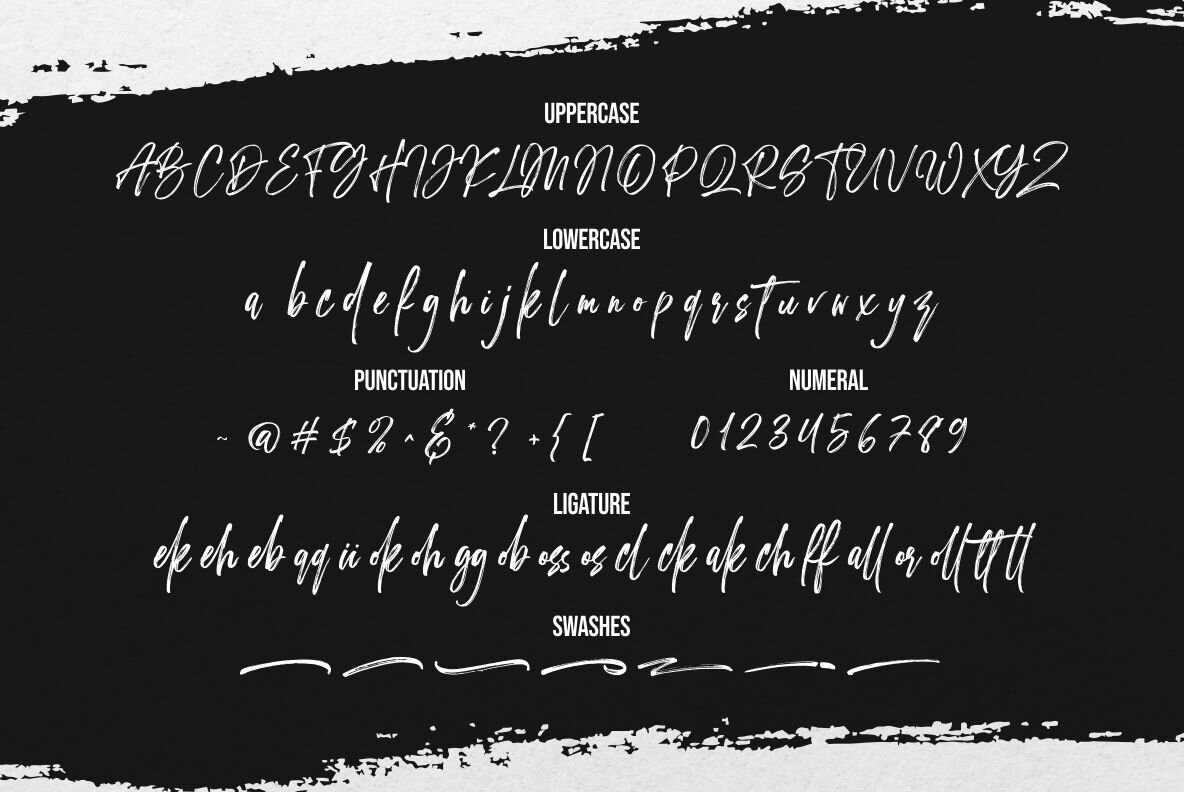 UPPERCASE
ABCDEFGHIJKLMNOPQRSTUVWXYZ
LOWERCASE
a bcdefghijklmnopqrstuvwxyz
PUNCTUATION
~ @ # $ % ^ & * ? + { [
NUMERAL
0123456789
LIGATURE
ek eh eb qq ii ok oh gg ob oss os cl ck ak ch ff all or oll tt tl
SWASHES